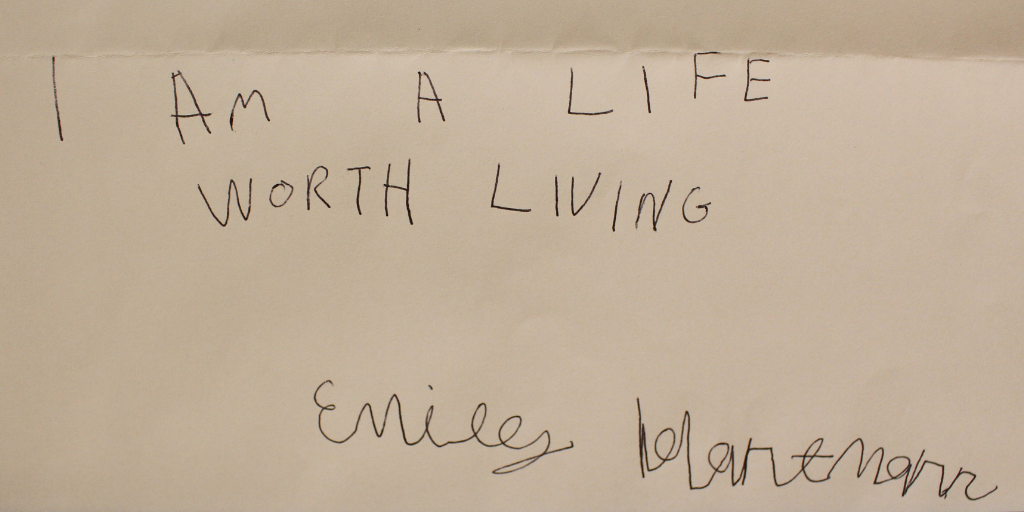 I AM A LIFE
WORTH LIVING
Emiley Hartmann